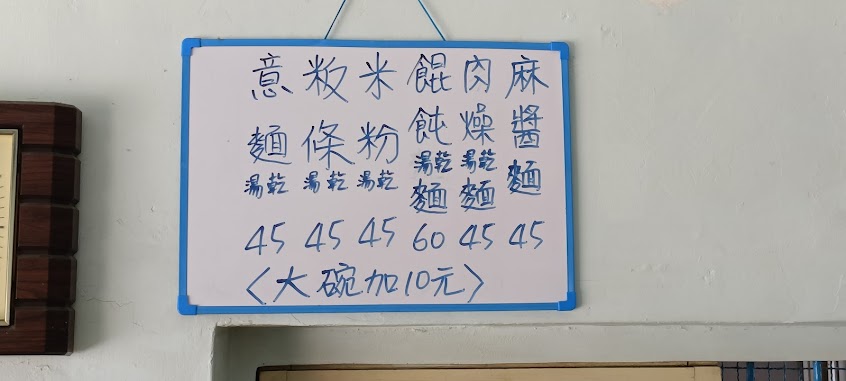 麻醬麵 45
肉燥湯乾麵 45
餛飩湯乾麵 60
米粉湯乾 45
粄條湯乾 45
意麵湯乾 45
〈大碗加10元〉